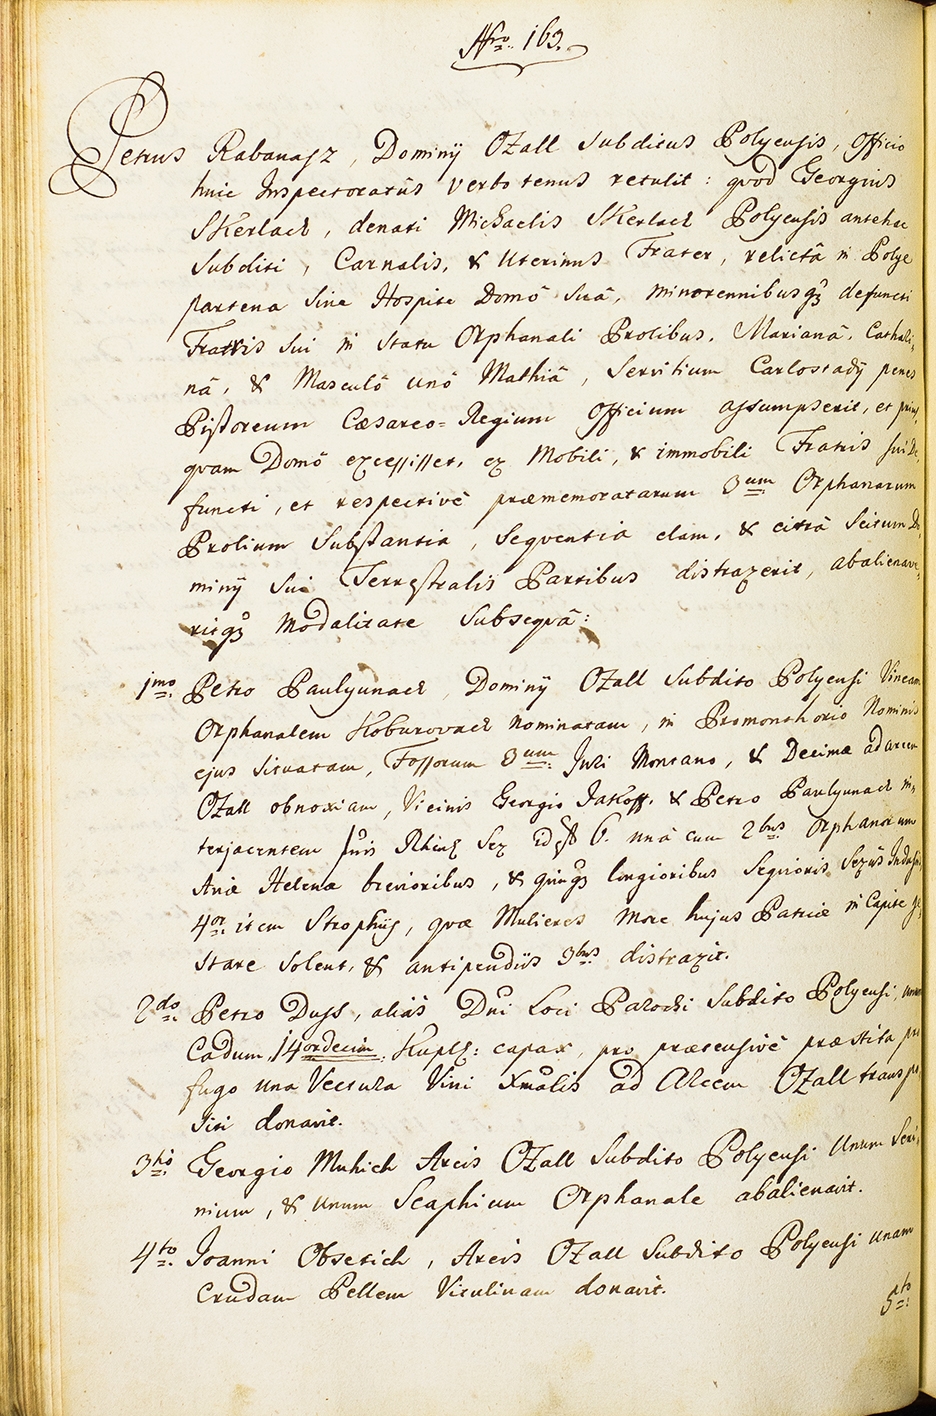 Nro. 163.
Petrus Rabanasz, Dominÿ Ozall Subditus Polyensis, officio
huic Inspectoratûs verbo tenus retulit: quod Georgius
Skerlacz, denati Michaelis Skerlacz Polyensis antehac
Subditi, Carnalis, & Uterinus Frater, relictâ in Polye
partena sine Hospite Domô suâ, minorennibusq3 defuncti
Fratris sui in statu Orphanali Prolibus, Marianâ, Cathali=
nâ, & Masculô unô Mathiâ, Servitium Carlostadÿ penes
Pistoreum Cæsareo=Regium Officium assumpserit, et prius,
quam Domô excessisset, ex Mobili, & immobili Fratris sui de,
functi, et respectivè præmemoratarum 3um Orphanarum
Prolium Substantia, Sequentia clam, & citrà Scitum Do,
minÿ sui Terrestralis Partibus distraxerit, abalienave,
ritq3 modalitate subsequâ:
1mo Petro Paulyunacz, Dominÿ Ozall Subdito Polyensi Vineam
Orphanalem Koburovacz nominatam, in Promonthorio Nominis
ejus situatam, Fossorum 8um Juri Montano, & Decimæ ad arcem
Ozall obnoxiam, Vicinis Georgio Jakoff, & Petro Paulyunacz in,
terjacentem Rhen: Sex id est 6. unâ cum 2bus Orphanorum
Aviæ Helenæ brevioribus, & quinq3 longioribus Sequioris Sexûs Indusiis
4or item Strophiis, quæ Mulieres more hujus Patriæ in Capite ge,
stare solent, & antipendiis 3bus distraxit.
2do Petro Duss, aliàs Dni Loci Parochi Subdito Polyensi, unum
Cadum, 14ordecim Kupl: capax, pro prætensivè præstita pro
fugo una Vectura Vini Xmalis ad Arcem Ozall transpo,
siti donavit.
3tiò Georgio Muhich Arcis Ozall Subdito Polyensi Unum Scri,
nium, & unum Scaphium Orphanale abalienavit.
4to Joanni Obsetich, Arcis Ozall Subdito Polyensi unam
Crudam Pellem Vitulinam donavit.
5to: